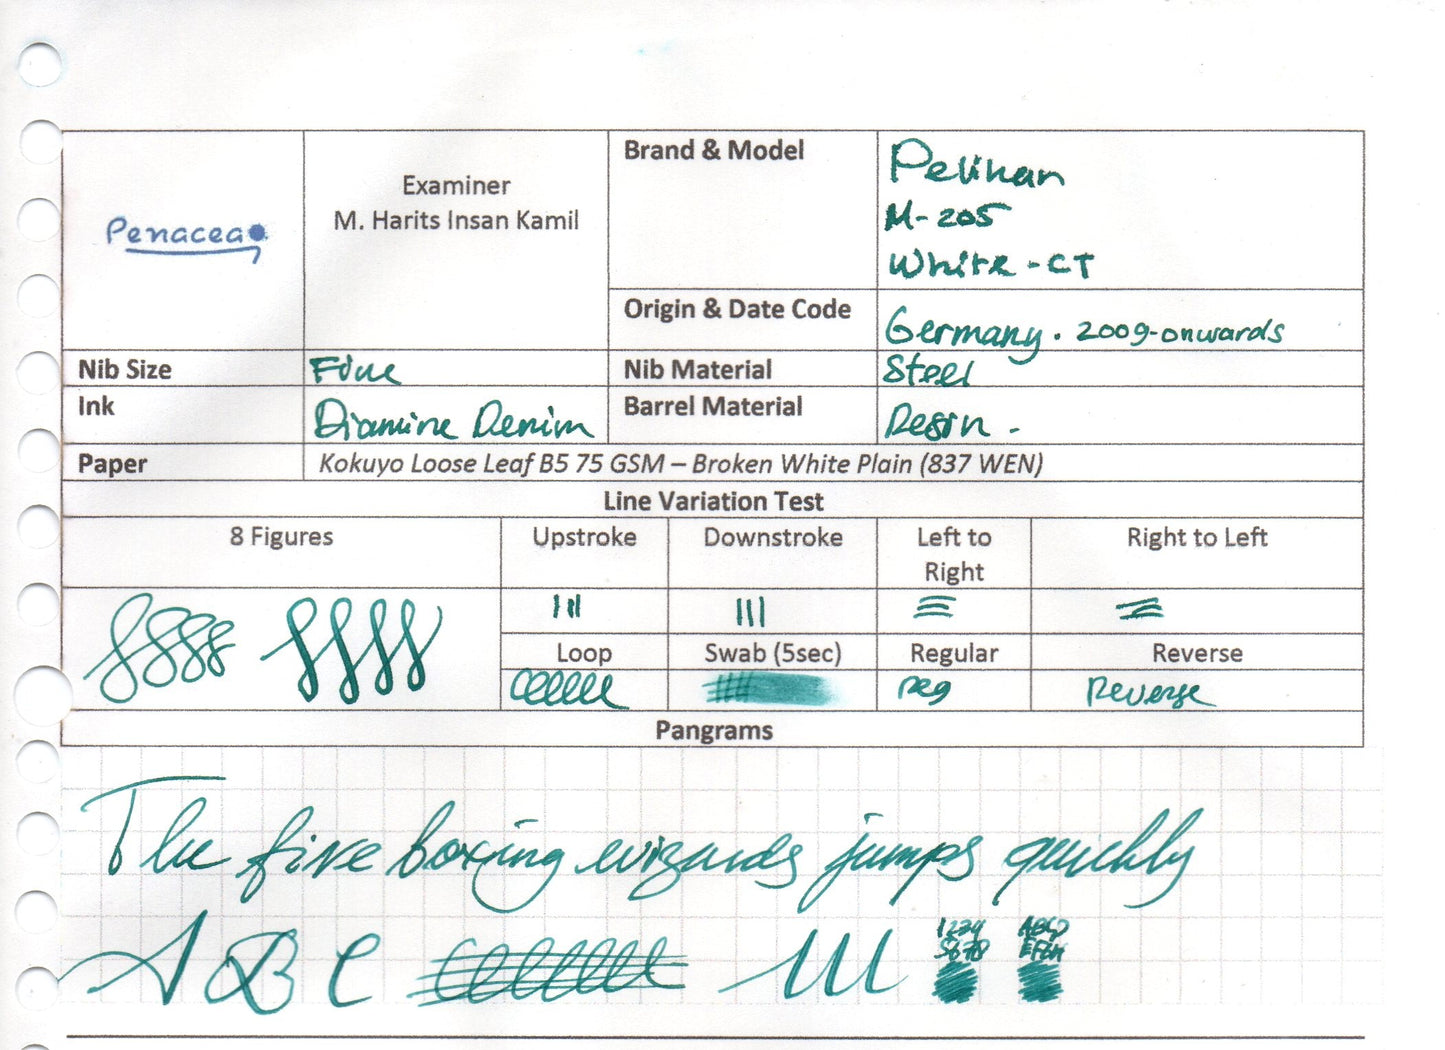 Penacea
Examiner
M. Harits Insan Kamil
Brand & Model
Pelikan
M-205
White-CT
Origin & Date Code
Germany. 2009-onwards
Nib Size
Fine
Nib Material
Steel
Ink
Diamine Denim
Barrel Material
Resin.
Paper
Kokuyo Loose Leaf B5 75 GSM – Broken White Plain (837 WEN)
Line Variation Test
8 Figures
Upstroke
Downstroke
Left to
Right
Right to Left
Loop
Swab (5sec)
Regular
Reverse
reg
Reverse
Pangrams
The five boxing wizards jumps quickly
A B C
1234
5678
ABCD
EFGH